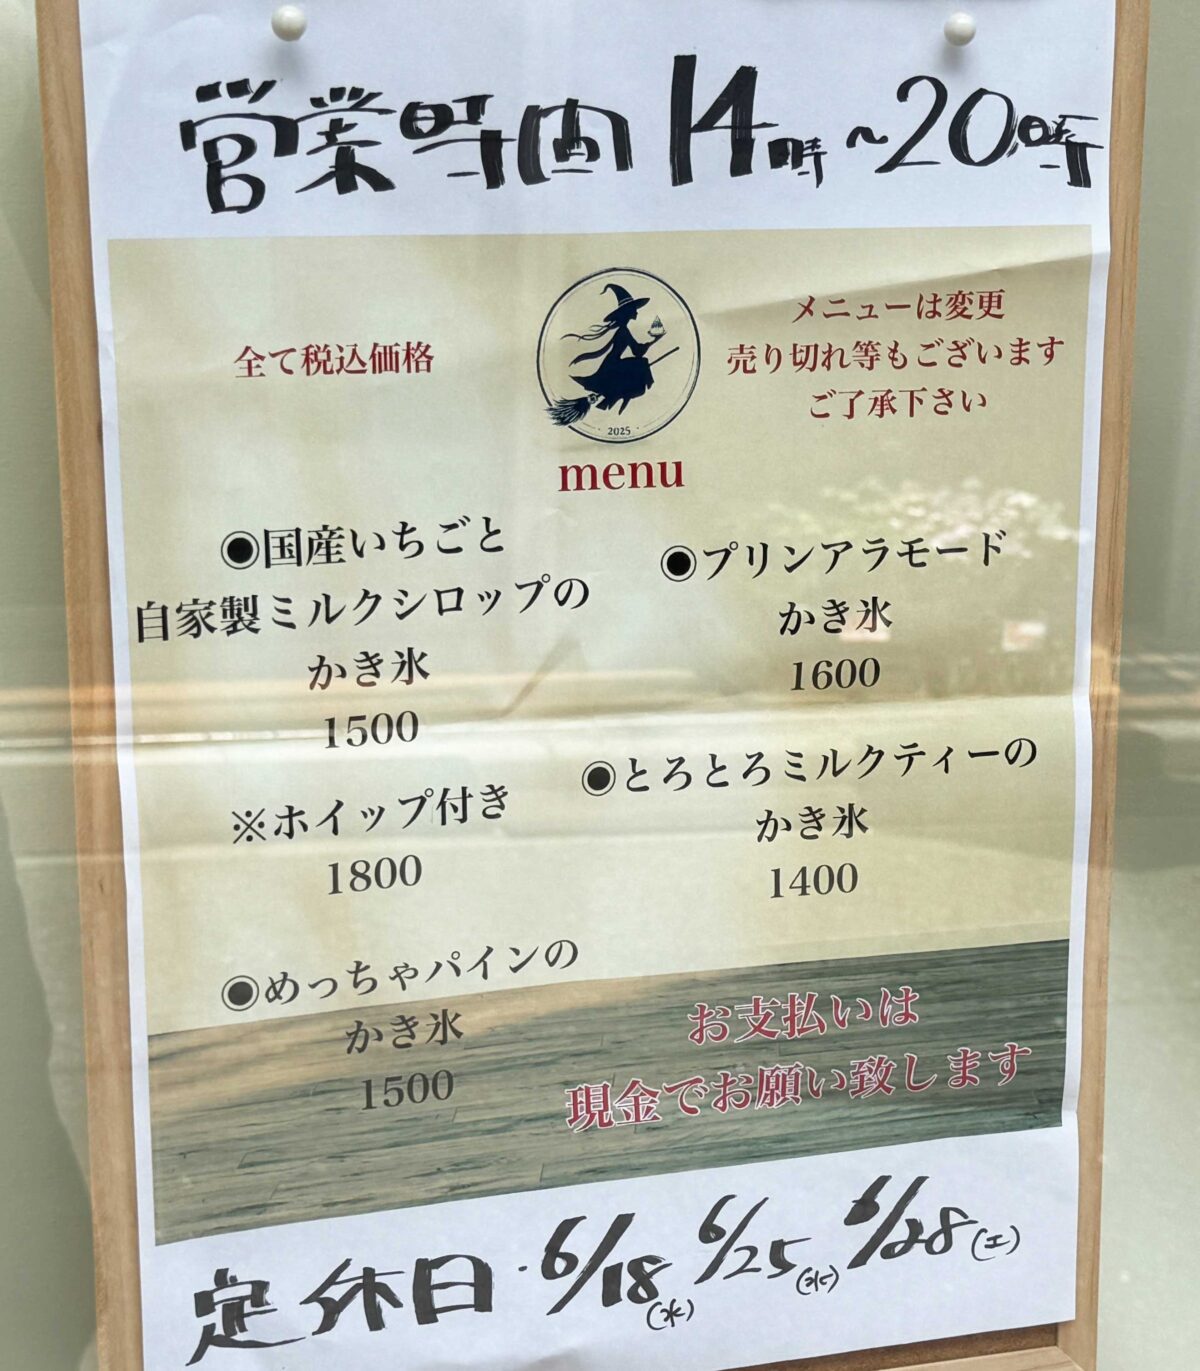 営業時間 14時~20時
全て税込価格
メニューは変更
売り切れ等もございます
ご了承下さい
2025
menu
◉国産いちごと
自家製ミルクシロップの
かき氷
1500
※ホイップ付き
1800
◉めっちゃパインの
かき氷
1500
◉プリンアラモード
かき氷
1600
◉とろとろミルクティーの
かき氷
1400
お支払いは
現金でお願い致します
定休日・6/18(水) 6/25(水) 6/28(土)